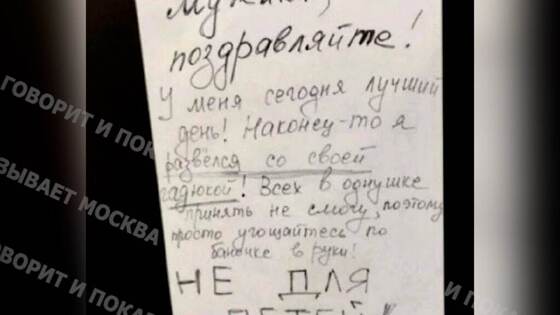 Мужики,
поздравляйте!
У меня сегодня лучший
день! Наконец-то я
развёлся со своей
гадюкой! Всех в однушке
принять не смогу, поэтому
просто угощайтесь по
баночке в руки!
НЕ ДЛЯ
ДЕТЕЙ
ГОВОРИТ И ПОК
ЗЫВАЕТ МОСКВА
ОВОРИТ И ПОКА
И ПО